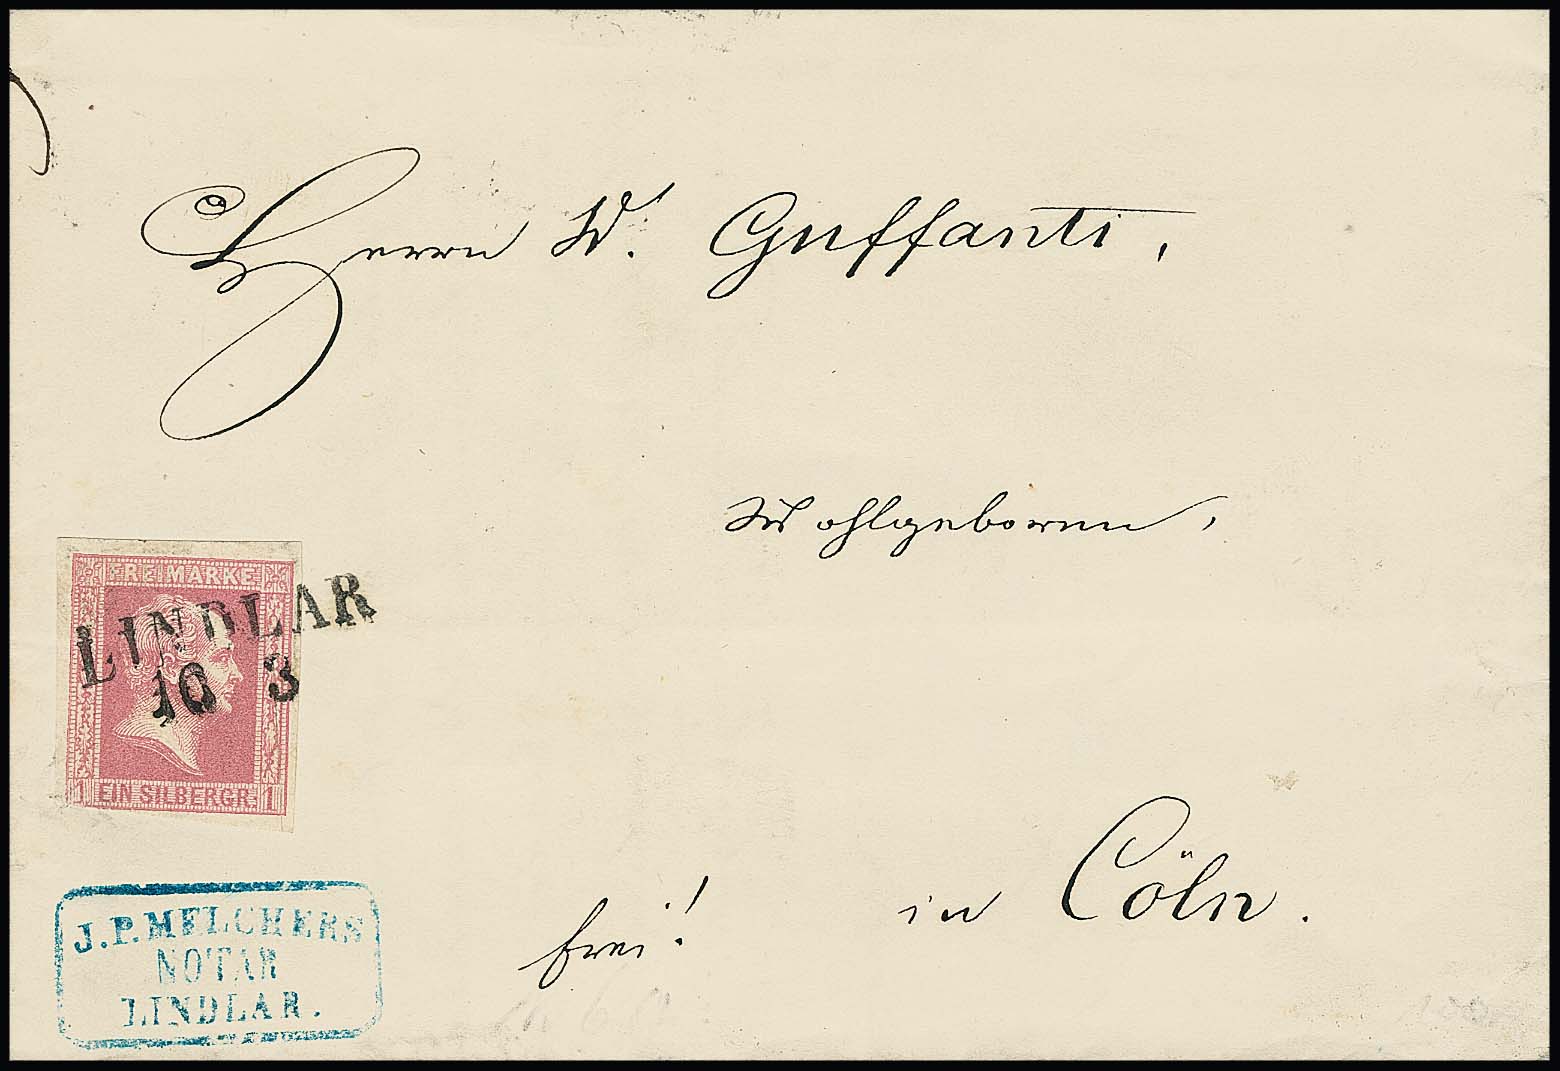 Herrn W. Guffanti,
Wohlgeboren,
in Cöln.
frei!
FREIMARKE
LINDLAR
10 3
1 EIN SILBERGR. 1
J.P. MELCHERS
NOTAR
LINDLAR.